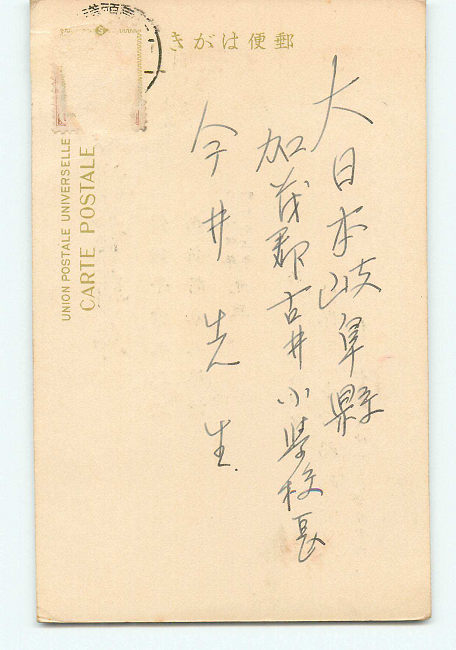 きがは便郵
大日本岐阜縣
加茂郡古井小学校長
今井先生
UNION POSTALE UNIVERSELLE
CARTE POSTALE